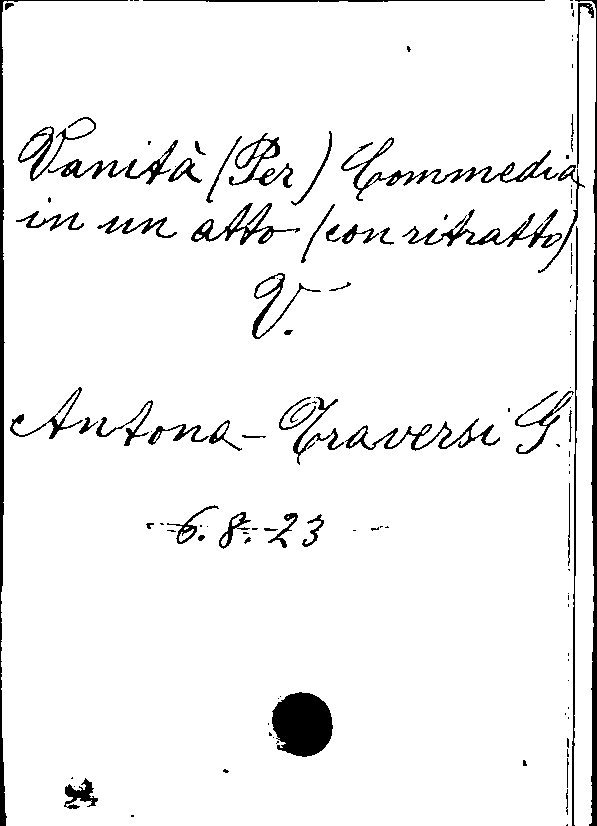 Vanità (Per) Commedia
in un atto (con ritratto)
V.
Antona-Traversi G.
6.8.23